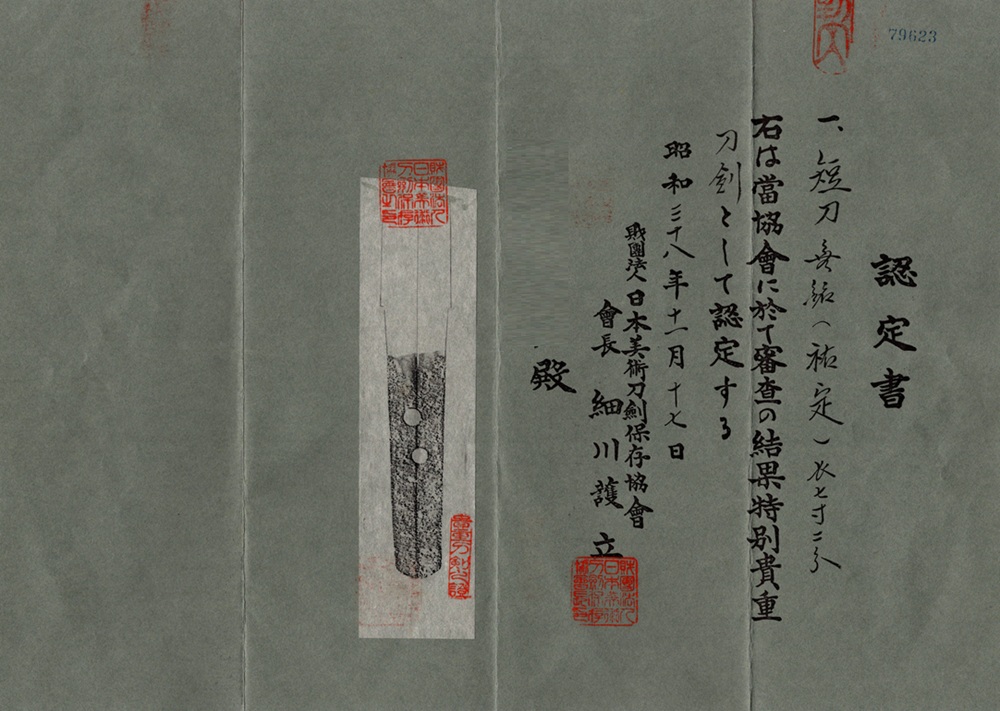 79623
認定書
一、短刀 無銘(祐定)長七寸二分
右は當協會に於て審査の結果特別貴重
刀劍として認定する
昭和三十八年十一月十七日
財團法人日本美術刀劍保存協會
會長 細川護立
殿